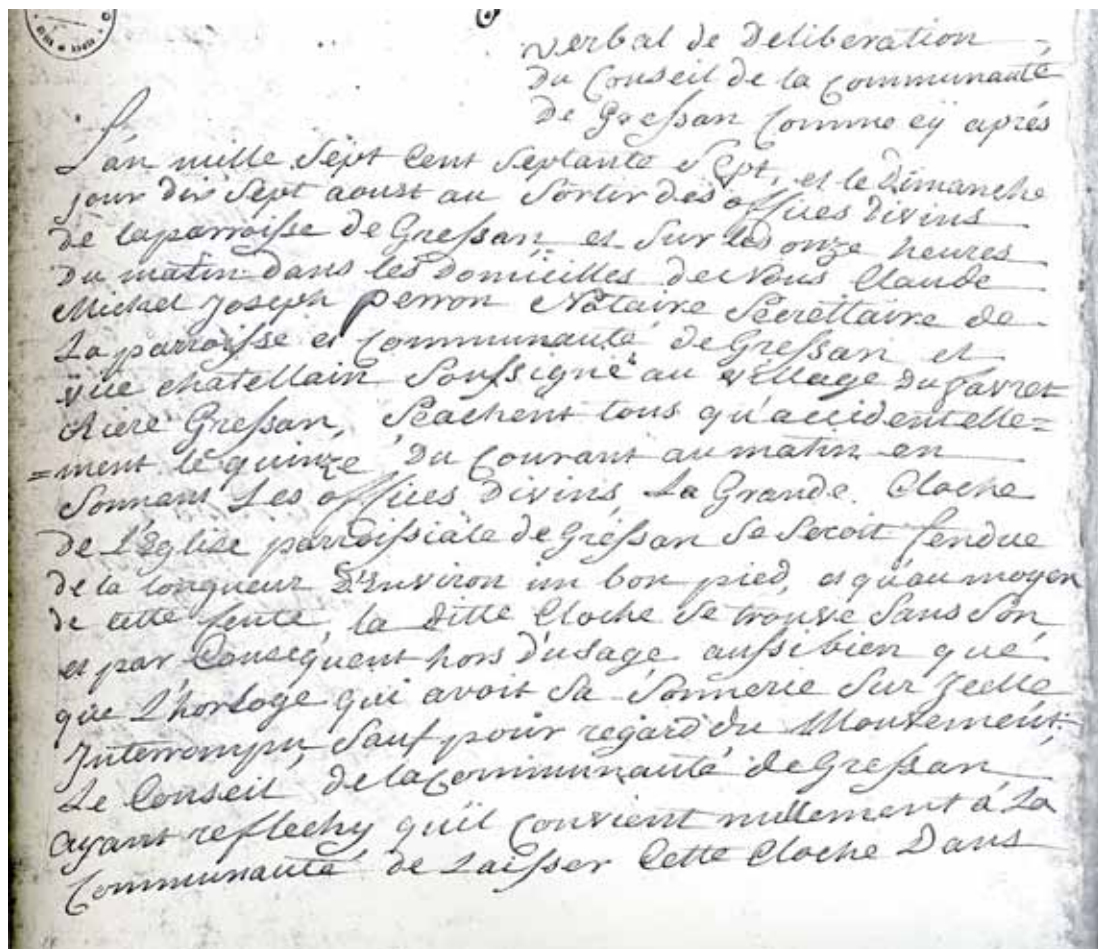 Verbal de Deliberation
Du Conseil de la Communauté
de Gressan comme cÿ aprés
L'an mille Sept Cent Septante Sept, et le Dimanche
jour dix Sept aoust au Sortir des offices Divins
de laparroisse de Gressan et Sur les onze heures
Du matin dans les Domicilles de Nous Claude
Michel Joseph perron Notaire Secrettaire de
La parroisse et Communauté de Gressan et
vice chatellain Soussigné au village Du favret
riere Gressan, Scachent tous qu'accidentelle=
=ment le quinze Du Courant au matin en
Sonnant Les offices Divins La Grande Cloche
de L'Eglise parroissiale de Gressan Se Seroit fendue
de la longueur D'Environ un bon pied, et qu'au moyen
de cette fente, la ditte Cloche Se trouve Sans Son
et par Consequent hors D'usage aussi bien que
que L'horloge qui avoit Sa Sonnerie Sur Jcelle
Jnterrompu, Sauf pour regard du Mouvement,
Le Conseil de la Communauté de Gressan
ayant reflechy quil Convient nullement á La
Communauté de Laisser Cette Cloche Dans